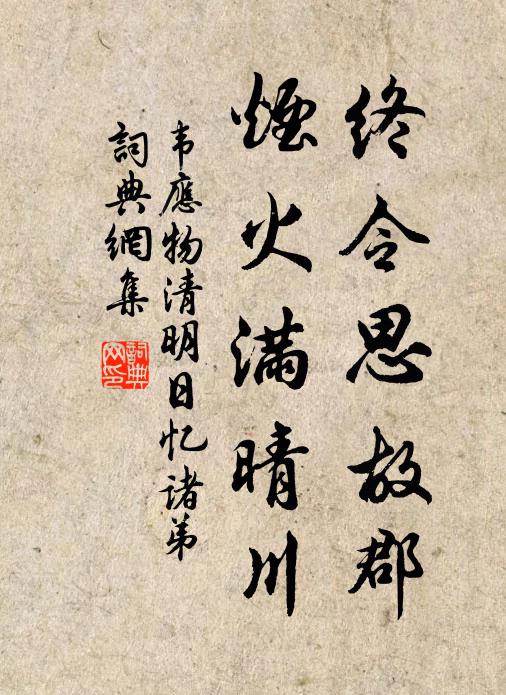 终令思故郡
煙火满晴川
韦應物清明日忆诸弟
詞典網集
詞典网印